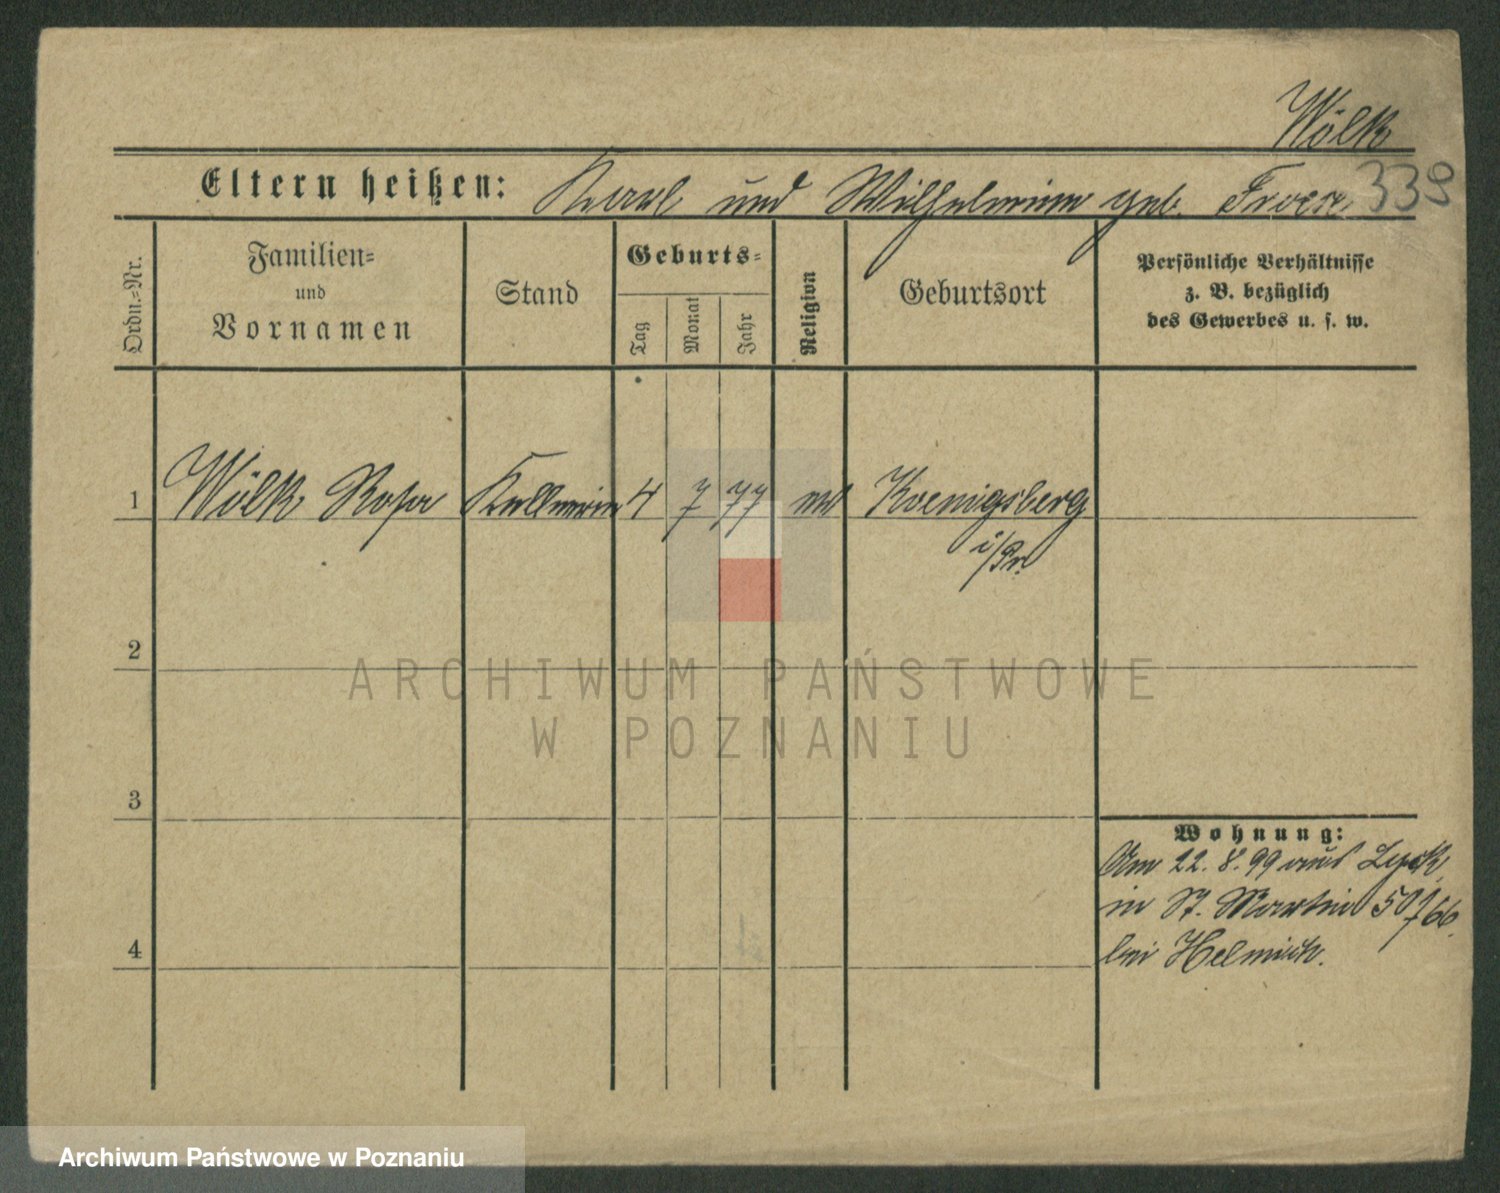 Wölk
339
Eltern heißen: Karl und Wilhelmine geb.
Ordn.=Nr.
Familien=
und
Vornamen
Stand
Geburts=
Tag
Monat
Jahr
Religion
Geburtsort
Persönliche Verhältnisse
z. B. bezüglich
des Gewerbes u. s. w.
1 Wölk Rosa Kellnerin 4 7 77 Koenigsberg
i/Pr.
2
ARCHIWUM PAŃSTWOWE
W POZNANIU
3
Wohnung:
Am 22. 8. 99 aus Lyck
in St. Martin
bei Helmich.
4
Archiwum Państwowe w Poznaniu